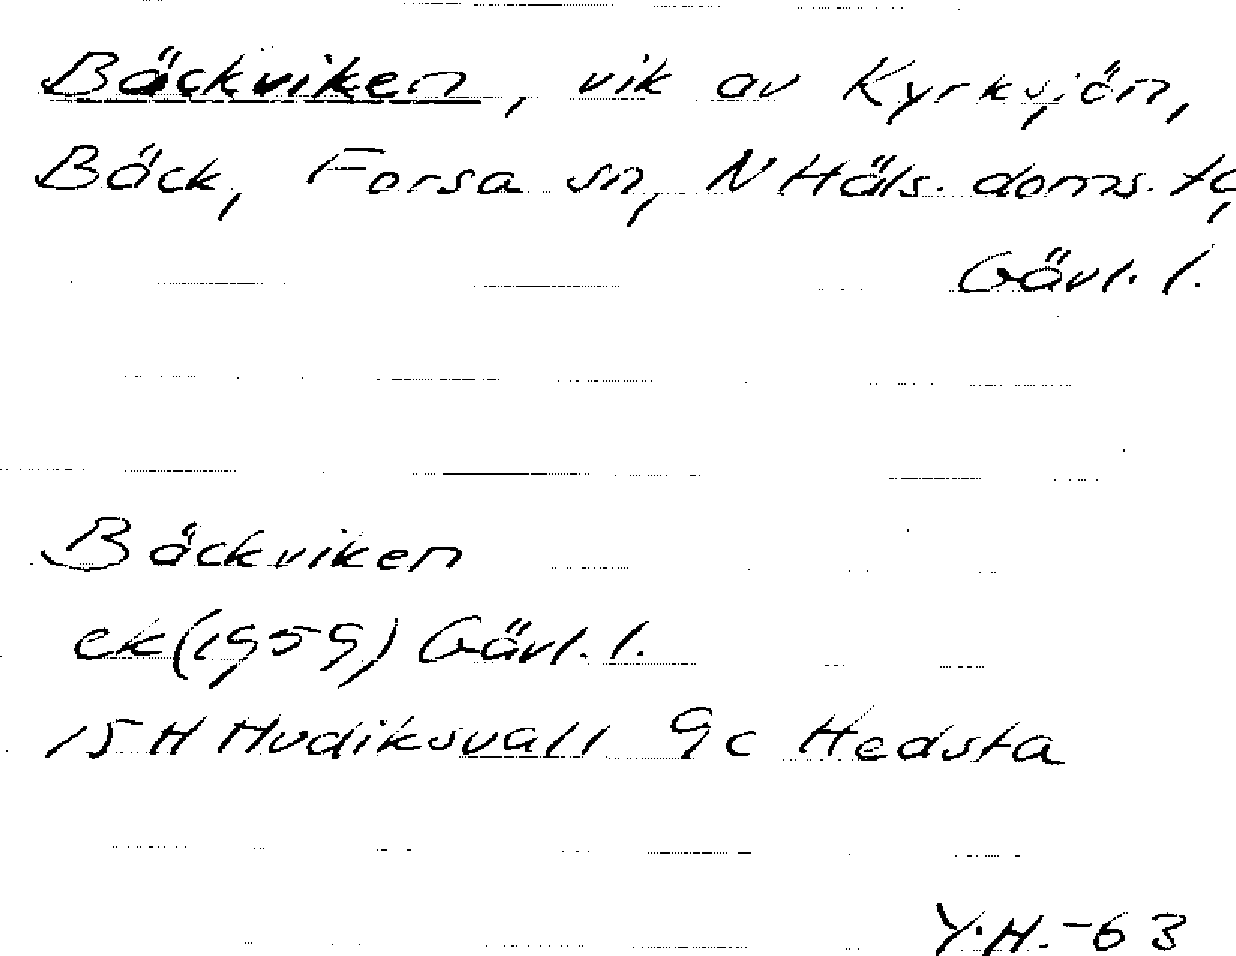 Bäckviken, vik av Kyrksjön,
Bäck, Forsa sn, N Häls. doms. t,
Gävl. l.
Bäckviken
ek (1959) Gävl. l.
15 H Hudiksvall 9c Hedsta
Y.H.-63